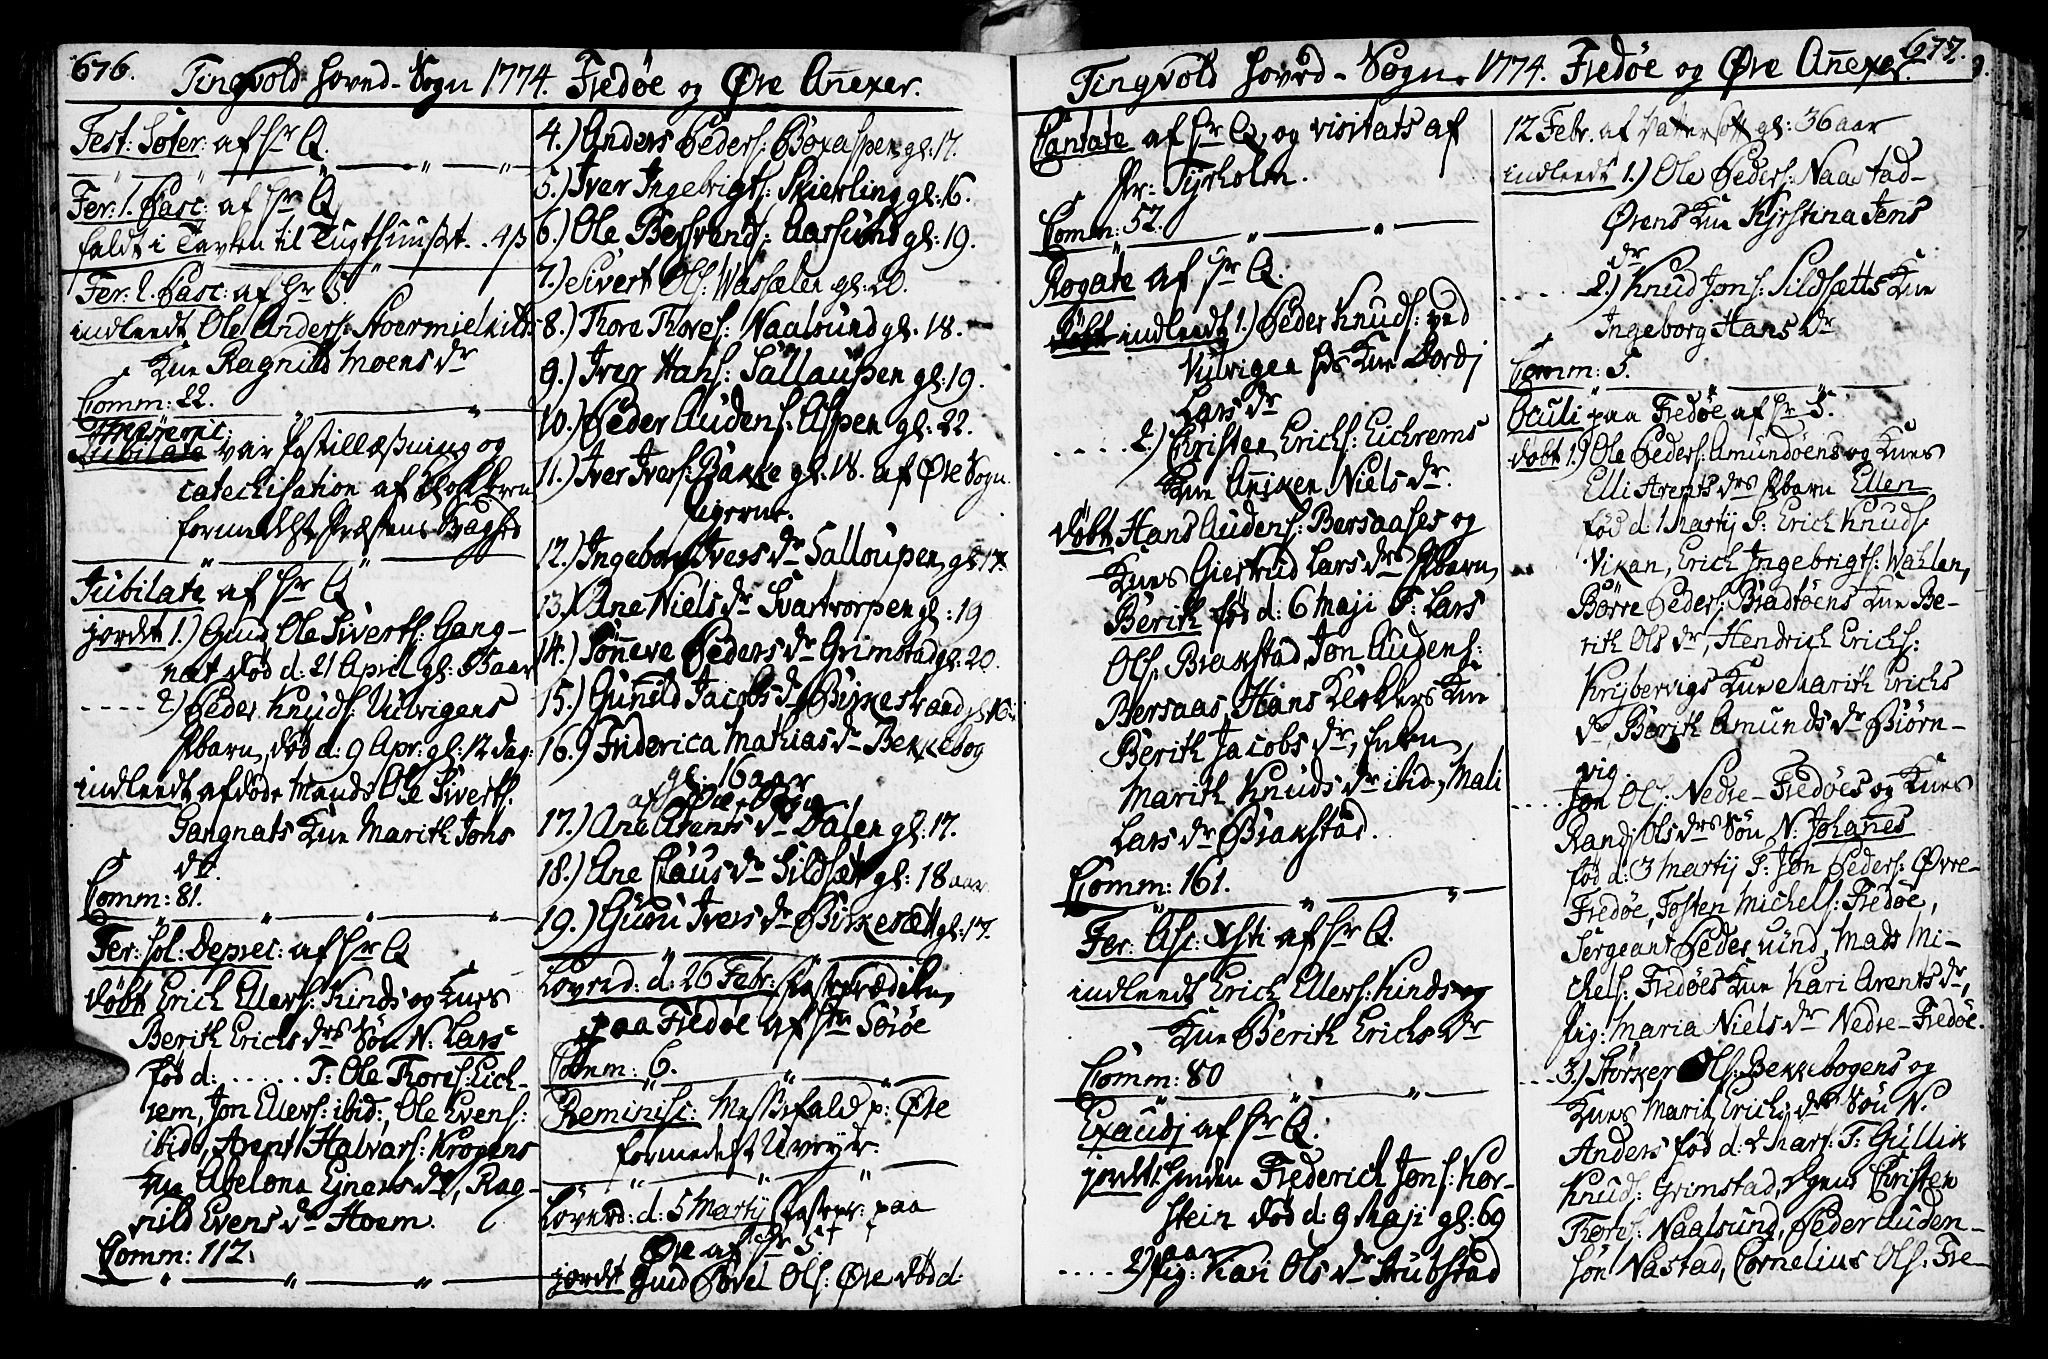 676.
Tingvold hoved-Sogn 1774. Fredøe og Øre Añexer.
Fest: Soter: af Hr Q.
Fer: 1. Pasc: af Hr Q
faldt i Tavlen til Tugthuuset. . 4 ß
Fer: 2. Pasc: af Hr S.
indleedt Ole Anders: Stoermielkildts
Kue Ragnild Moens dr
Comm: 22.
var Postillæsning og
catechisation af Skolhren
formedelst Præstens Svaghed
Jubilate af Hr Q
jordet 1.) Gmd Ole Siverts: Gang-
nat død d: 21 April gl: aar
. . . . 2) Peder Knuds: Ulvigens
Pbarn, død d: 9 Apr: gl: 12 dag:
indleedt afdøde Mands Ole Siverts:
Gangnats Kue Marith Johs
dtr
Comm: 81.
Fer: sol: Deprec: af Hr Q
døbt Erich Ellers: Kinds og Kues
Berith Erichs drs Søn N: Lars
fød d: . . . . . . T: Ole Thores: Eich-
rem, Jon Ellers: ibid:, Ole Evens:
ibid:, Arent Halvars: Krogens
Kue Abelona Ejners dr, Rag-
nild Evens dr Hoem.
Comm: 112.
4.) Anders Peders: Boxaspen gl: 17.
5.) Iver Ingebrigts: Skierling gl: 16.
6.) Ole Bersvends: Aarsund gl: 19.
7.) Sivert Ols: Wassælen gl: 20.
8.) Thore Thores: Naalsund gl: 18.
9.) Iver Hans: Salloupen gl: 19.
10.) Peder Audens: Aspen gl: 22.
11.) Iver Ivers: Bakke gl: 18. af Øre Sogn.
Pigerne.
12.) Ingeborg Ivers dr Salloupen gl: 17
13.) Ane Niels dr Svartvorpen gl: 19
14.) Sønneve Peders dr Grimstad gl: 20.
15.) Gunild Jacobs dr Birkestrand gl: 16
16.) Friderica Mathias dr Bekkebog
gl: 16 aar
af Øre Sogn
17.) Ane Arents dr Dalen gl: 17.
18.) Ane Claus dr Sildsæt gl: 18 aar.
19.) Guru Ivers dr Birkesæt gl: 17.
Løverd: d: 26 Febr: Fasteprædiken
paa Fredøe af Hr Sørøe
Comm: 6.
Reminisc: Messefald p: Øre
formedelst Uveyr.
Løverd: d: 5 Martij Fastepr: paa
Øre af Hr S:
jordet Gmd Povel Ols: Øre død d:
677.
Tingvold hoved-Sogn. 1774. Fredøe og Øre Añexer.
Cantate af Hr Q, og visitats af
Pr: Tyrholm.
Comm: 52.
Rogate af Hr Q.
indleedt 1.) Peder Knuds: ved
Ulvigen hs Kue Dordj
Lars dr
. . . . . 2.) Christen Erichs: Eichrems
Kue Aniken Niels dr.
døbt Hans Audens: Bersaases og
Kues Giertrud Lars drs Pbarn,
Berith fød d: 6 Maji T: Lars
Ols: Brakstad, Jon Audens:
Bersaas, Hans Klokkers Kue
Berith Jacobs dr, Enken,
Marith Knuds dr ibid:, Mali
Lars dr Brakstad.
Comm: 161.
Fer: Asc: Xsti af Hr Q.
indleedt Erich Ellers: Kinds
Kue Berith Erichs dr
Comm: 80
Exaudj af Hr Q.
jordet Enken Frederich Jons: Kor-
stein død d: 9 Maji gl: 69
aar
. . . . 2) Pig: Kari Ols dr Strubstad
12 Febr. af gl: 36 aar
indleedt 1.) Ole Peders: Naastad-
Ørens Kue Kirstina Jens
dr
. . . . . 2.) Knud Jons: Sildsætts Kue
Ingeborg Hans dr
Comm: 5.
Oculi paa Fredøe af Hr S.
døbt 1.) Ole Peders: Amundøens og Kues
Elli Arents drs Pbarn Ellen
fød d: 1 Martij T: Erich Knuds:
Vikan, Erich Ingebrigts: Wahlen,
Børre Peders: Bradtøens Kue Be-
rith Ols dr, Hendrich Erichs:
Krybervigs Kue Marith Erichs
dr, Berith Amunds dr Biørn-
vig.
. . . . Jon Ols: Nedre-Fredøes og Kues
Randj Ols drs Søn N: Johañes
fød d: 3 Martij T: Jon Peders: Øvre-
Fredøe, Tosten Michels: Fredøe,
Sergeant Peder Uind, Mads Mi-
chels: Fredøes Kue Kari Arents dr,
Pig: Maria Niels dr Nedre-Fredøe.
. . . . 3.) Størker Ols: Bekkebogens og
Kues Marit Erichs drs Søn N.
Anders fød d: 2 Mart: T: Gullik
Knuds: Grimstad, Christen
Thores: Naalsund, Peder Auden-
søn Nastad, Cornelius Ols: Fre-